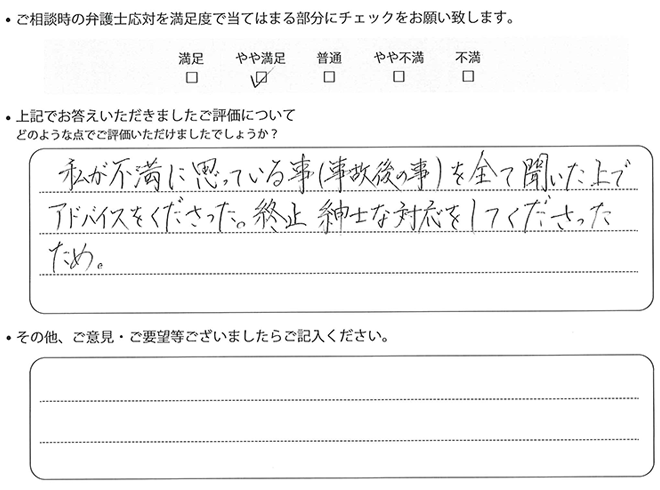 • ご相談時の弁護士応対を満足度で当てはまる部分にチェックをお願い致します。
満足 やや満足 普通 やや不満 不満
□ ☑ □ □ □
• 上記でお答えいただきましたご評価について
どのような点でご評価いただけましたでしょうか？
私が不満に思っている事(事故後の事)を全て聞いた上で
アドバイスをくださった。終止 紳士な対応をしてくださった
ため。
• その他、ご意見・ご要望等ございましたらご記入ください。